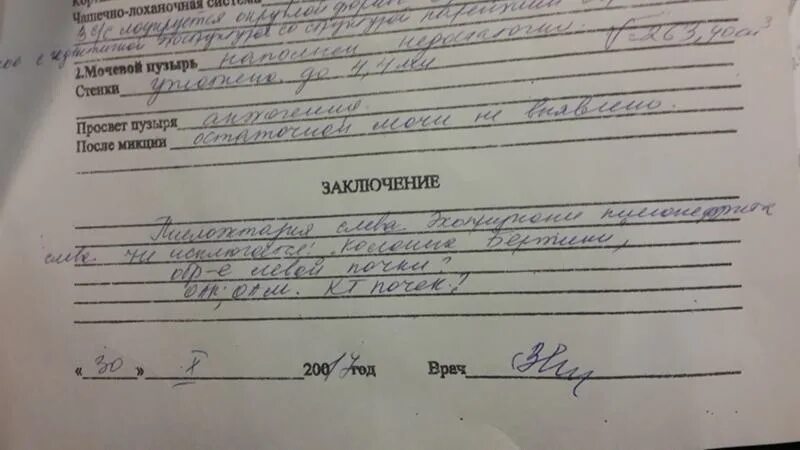 Чашечно-лоханочная система
ВЧС лоцируется округлой форм
с идентичной эхоструктурой со структурой паренхимы
V=263,40см³
2.Мочевой пузырь наполнен недостаточно.
Стенки утолщено до 4,4мм
Просвет пузыря анэхогенно.
После микции остаточной мочи не выявлено.
ЗАКЛЮЧЕНИЕ
Пиелоэктазия слева. Эхопризнаки пиелонефрита
слева. Не исключается: Колонна Бертини,
обр-е левой почки?
ОАК; ОАМ. КТ почек?
« 30 » X 2001 7 год Врач